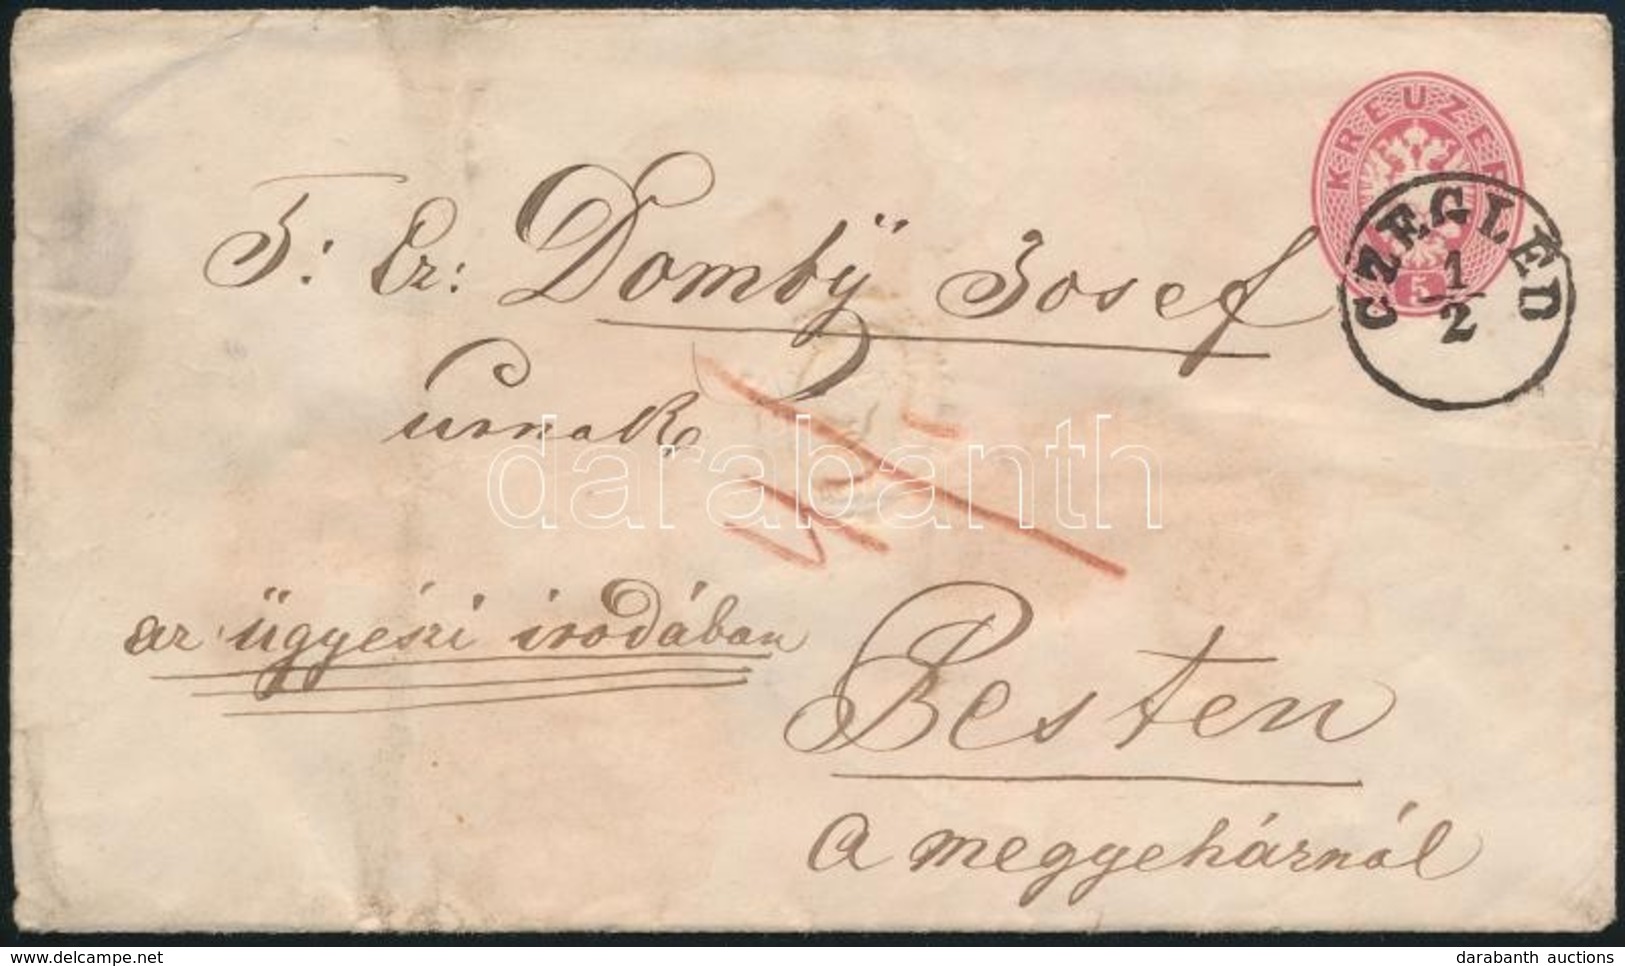 KREUZER
5
CZEGLÉD
1
2
T: Cz: Domby Josef
urnak
az ügyészi irodában
Pesten
a megyehárnál
darabanth
www.delcampe.net
darabanth auctions